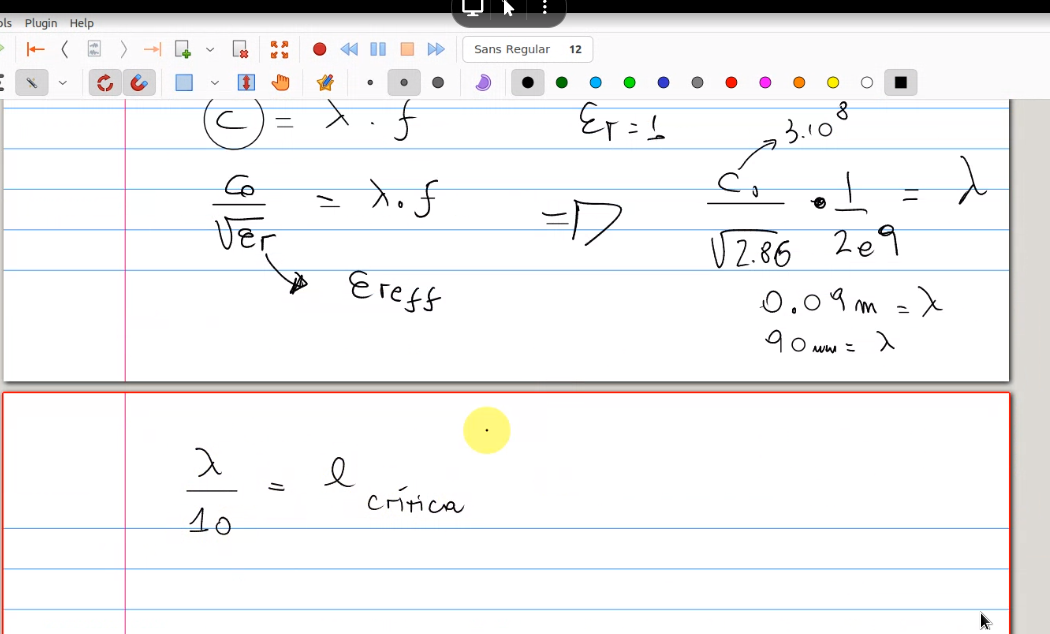 ols Plugin Help
Sans Regular 12
C = λ . f
εr = 1
3.10^8
C0 / √εr = λ . f
=> C0 / √2.86 . 1 / 2e9 = λ
εreff
0.09 m = λ
90 mm = λ
λ / 10 = l crítica